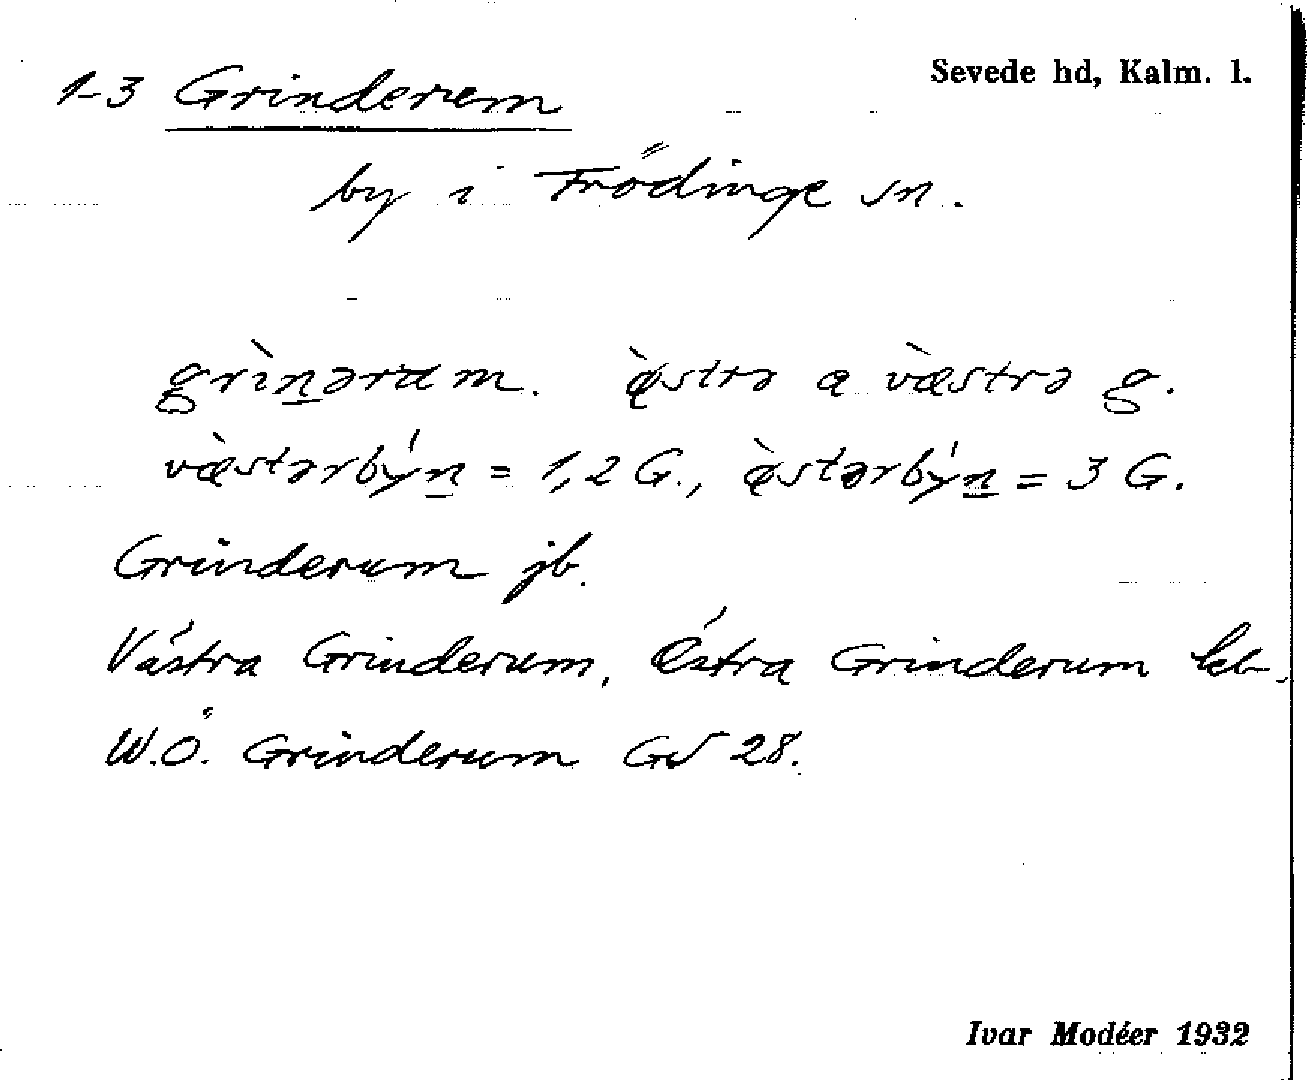 Sevede hd, Kalm. l.
1-3 Grinderum
by i Frödinge sn.
grìn̲ərum. æ̀strə a væ̀strə g.
væ̀stərbýn̲ = 1,2 G., æ̀stərbýn̲ = 3 G.
Grinderum jb.
Västra Grinderum, Östra Grinderum kb.
W.Ö. Grinderum GS 28.
Ivar Modéer 1932